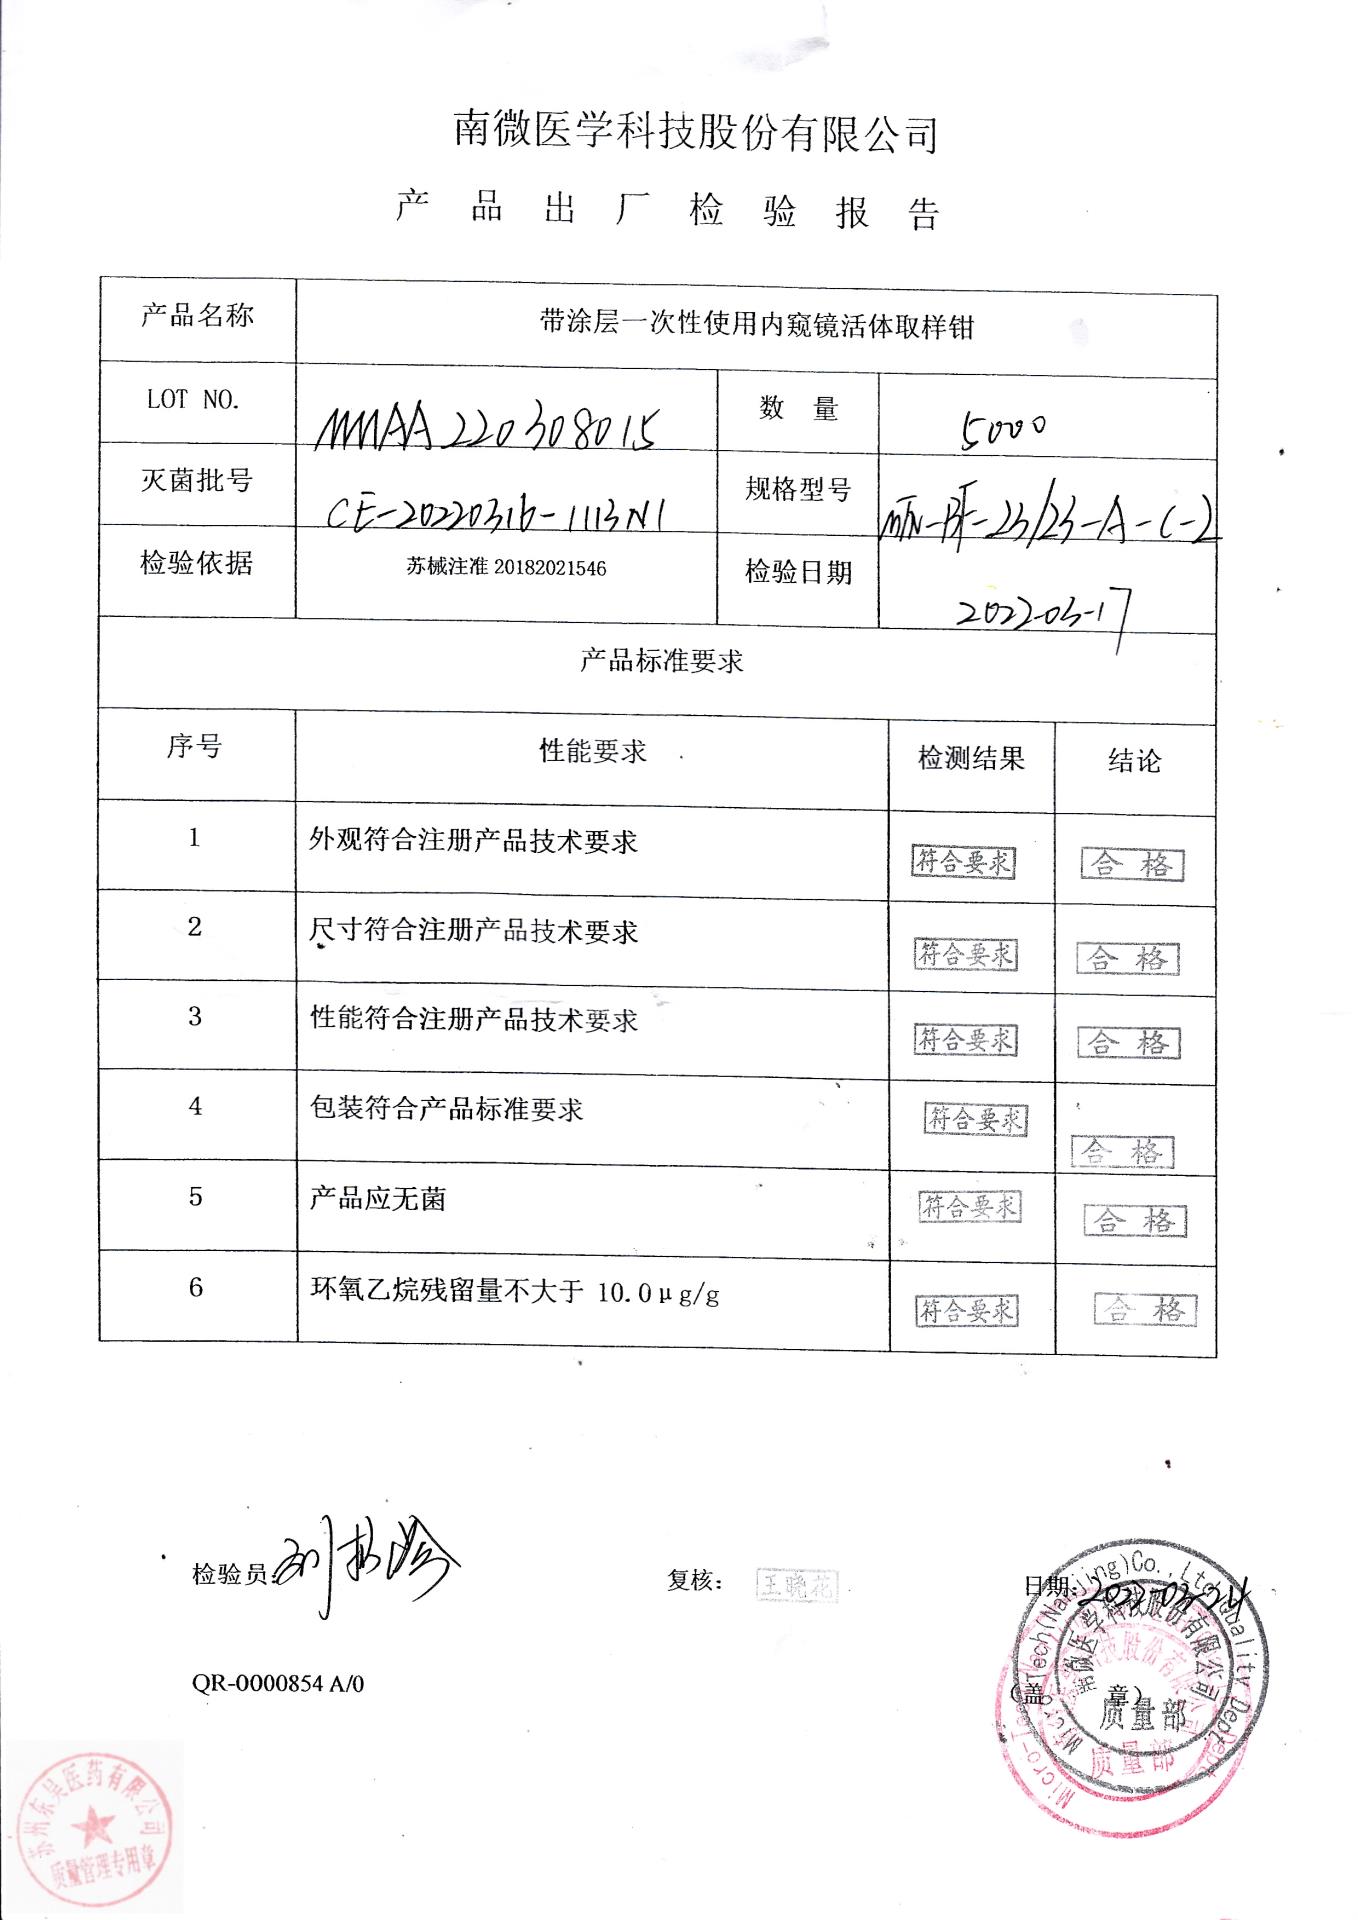 南微医学科技股份有限公司
产品出厂检验报告
产品名称 带涂层一次性使用内窥镜活体取样钳
LOT NO. MMAA220308015 数 量 5000
灭菌批号 CE-20220316-1113N1 规格型号 MTN-BF-23/23-A-C-2
检验依据 苏械注准 20182021546 检验日期 2022-03-17
产品标准要求
序号 性能要求 检测结果 结论
1 外观符合注册产品技术要求 符合要求 合格
2 尺寸符合注册产品技术要求 符合要求 合格
3 性能符合注册产品技术要求 符合要求 合格
4 包装符合产品标准要求 符合要求 合格
5 产品应无菌 符合要求 合格
6 环氧乙烷残留量不大于 10.0μg/g 符合要求 合格
检验员: 复核: 王晓花 日期: 2022-03-24
QR-0000854 A/0
(盖 章)
Micro-Tech(Nanjing)Co.,Ltd Quality Dept.
南微医学科技股份有限公司
质量部
质量部
苏州东吴医药有限公司
质量管理专用章